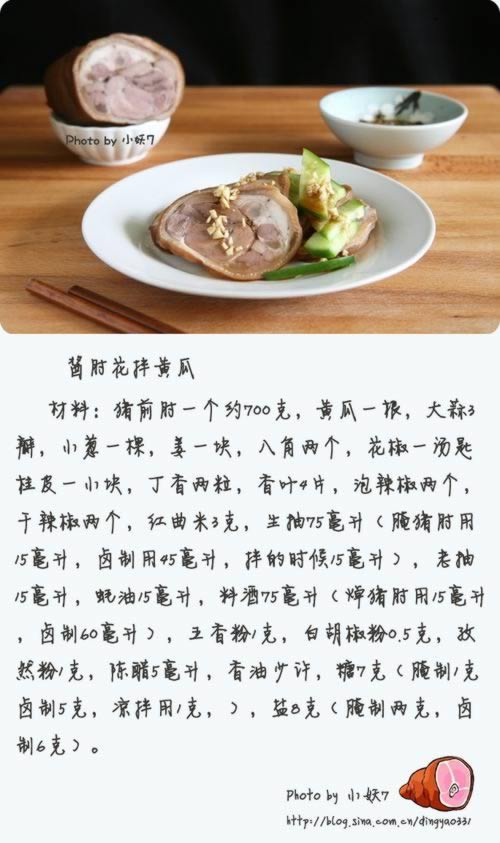 Photo by 小妖7
酱肘花拌黄瓜
材料：猪前肘一个约700克，黄瓜一根，大蒜3
瓣，小葱一棵，姜一块，八角两个，花椒一汤匙
桂皮一小块，丁香两粒，香叶4片，泡辣椒两个，
干辣椒两个，红曲米3克，生抽75毫升（腌猪肘用
15毫升，卤制用45毫升，拌的时候15毫升），老抽
15毫升，蚝油15毫升，料酒75毫升（焯猪肘用15毫升
，卤制60毫升），五香粉1克，白胡椒粉0.5克，孜
然粉1克，陈醋5毫升，香油少许，糖7克（腌制1克
卤制5克，凉拌用1克，），盐8克（腌制两克，卤
制6克）。
Photo by 小妖7
http://blog.sina.com.cn/dingyao331